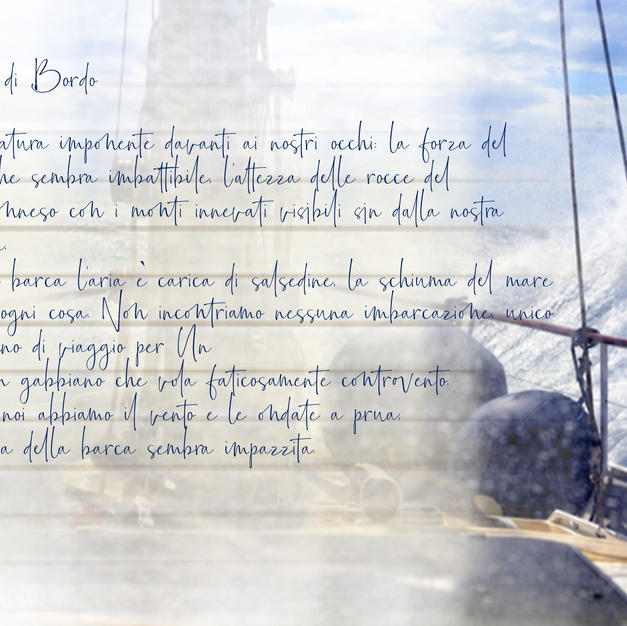 di Bordo
atura imponente davanti ai nostri occhi: la forza del
he sembra imbattibile, l'altezza delle rocce del
nneso con i monti innevati visibili sin dalla nostra
barca l'aria è carica di salsedine, la schiuma del mare
ogni cosa. Non incontriamo nessuna imbarcazione, unico
no di viaggio per Un
n gabbiano che vola faticosamente controvento.
noi abbiamo il vento e le ondate a prua:
a della barca sembra impazzita.